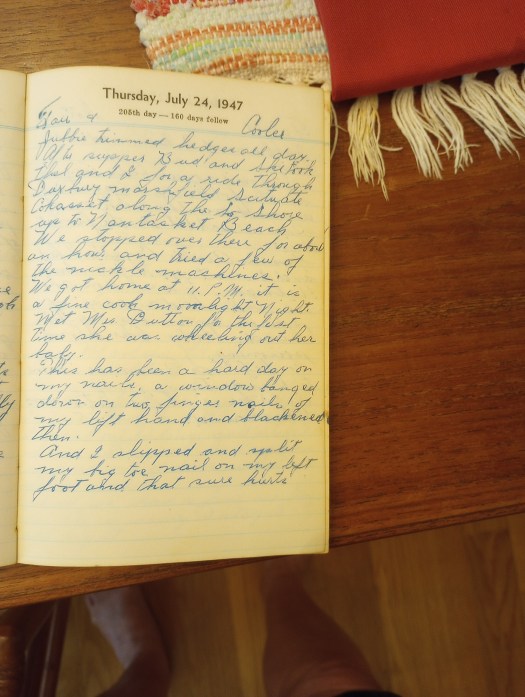 Thursday, July 24, 1947
205th day — 160 days follow
Fair & Cooler
trimmed hedges all day.
supper Bud and she took
and I for a ride through
Duxbury Marshfield Scituate
Cohasset along the So. Shore
up to Nantasket Beach
We stopped over there for about
an hour and tried a few of
the nickle machines.
We got home at 11. P.M. it is
a fine cool moonlight Night.
Met Mrs Dutton for the first
time she was wheeling out her
baby.
This has been a hard day on
my nails. a window banged
down on two finger nails of
my left hand and blackened
them.
And I slipped and split
my big toe nail on my left
foot and that sure hurts